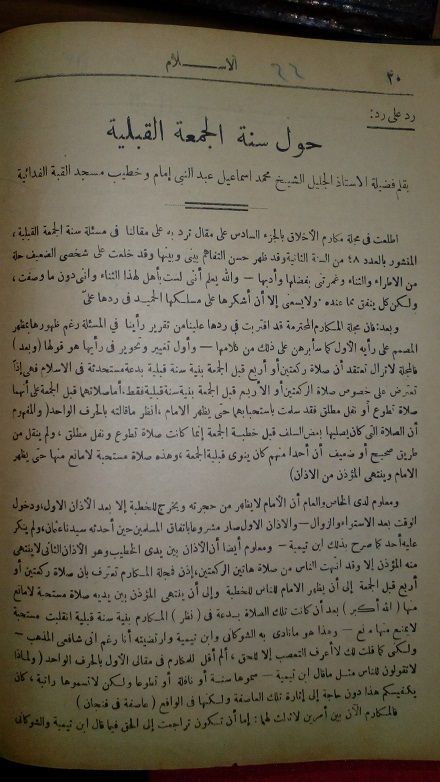 ٤٠
الاســـلام
٤٤
رد على رد:
حول سنة الجمعة القبلية
بقلم فضيلة الاستاذ الجليل الشيخ محمد اسماعيل عبد النبي إمام وخطيب مسجد القبة الفدائية
اطلعت فى مجلة مكارم الأخلاق بالجزء السادس على مقال ترد به على مقالنا فى مسئلة سنة الجمعة القبلية ،
المنشور بالعدد ٤٨ من السنة الثانية وقد ظهر حسن التفاهم بينى وبينها وقد خلعت على شخصى الضعيف حلة
من الاطراء والثناء وغمرتنى بفضلها وأدبها — والله يعلم أنى لست بأهل لهذا الثناء وانى دون ما وصفت ،
ولكن كل ينفق مما عنده ولا يسعنى إلا أن أشكرها على مسلكها الحميد فى ردها على
وبعد: فان مجلة المكارم المحترمة قد اقتربت فى ردها علينا من تقرير رأينا فى المسئلة رغم ظهورها بمظهر
المصمم على رأيه الأول كما سأبرهن على ذلك من كلامها — وأول تغيير وتحوير فى رأيها هو قولها (وبعد)
فالمجلة لاتزال تعتقد أن صلاة ركعتين أو أربع قبل الجمعة بنية سنة قبلية بدعة مستحدثة فى الاسلام فهى إذاً
تعترض على خصوص صلاة الركعتين أو الاربع قبل الجمعة بنية سنة قبلية فقط، أما صلاتهما قبل الجمعة على أنهما
صلاة تطوع أو نفل مطلق فقد سلمت باستحبابهما حتى يظهر الامام ، انظر ماقالته بالحرف الواحد ( والمفهوم
أن الصلاة التى كان يصليها بعض السلف قبل خطبة الجمعة إنما كانت صلاة تطوع ونفل مطلق ، ولم ينقل من
طريق صحيح أو ضعيف أن أحدا منهم كان ينوى قبلية الجمعة ، وهذه صلاة مستحبة لامانع منها حتى يظهر
الامام وينتهى المؤذن من الاذان)
ومعلوم لدى الخاص والعام أن الامام لايظهر من حجرته ويخرج للخطبة إلا بعد الأذان الاول، ودخول
الوقت بعد الاستواء والزوال — والاذان الاول صار مشروعا باتفاق المسلمين حين أحدثه سيدنا عثمان، ولم ينكر
عليه أحد كما صرح بذلك ابن تيمية — ومعلوم أيضا أن الأذان بين يدى الخطيب وهو الأذان الثانى لا ينتهى
منه المؤذن إلا وقد انتهت الناس من صلاة هاتين الركعتين، إذن فمجلة المكارم تعترف بان صلاة ركعتين أو
أربع قبل الجمعة إلى أن يظهر الامام للناس للخطبة وإلى أن ينتهى المؤذن بين يديه صلاة مستحبة لامانع
منها ( الله أكبر ) بعد أن كانت تلك الصلاة بدعة فى ( نظر ) المكارم بنية سنة قبلية انقلبت مستحبة
لا يمنع منها مانع — وهذا هو مانادى به الشوكانى وابن تيمية وارتضيته أنا رغم انى شافعى المذهب —
ولكنى كما قلت لك لا أعرف التعصب إلا للحق ، ألم أقل للمكارم فى مقالى الاول بالحرف الواحد ( ولماذا
لاتقولون للناس مثل ماقال ابن تيمية — سموها سنة أو نافلة أو تطوعا ولكن لاتسموها راتبة ، كان
يكفيكم هذا دون حاجة إلى إثارة تلك العاصفة ولكنها فى الواقع ( عاصفة فى فنجان )
فالمكارم الآن بين أمرين لاثالث لهما : إما أن تكون تراجعت إلى الحق فيما قال ابن تيمية والشوكانى